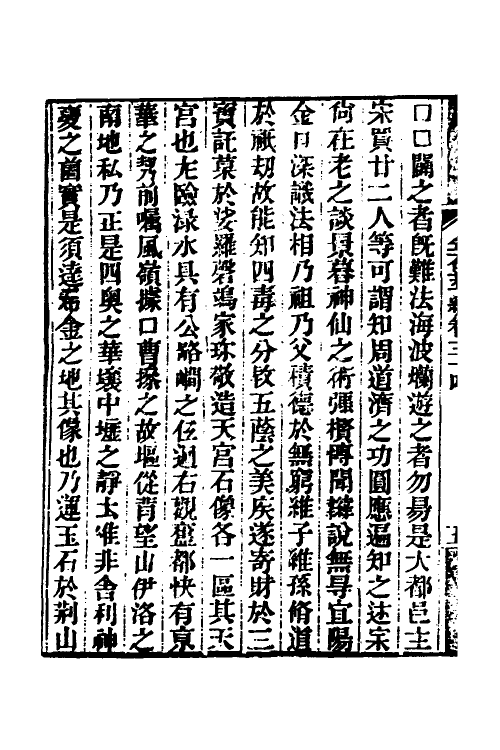 口口關之者旣難法海波爛遊之者勿易是大都邑主
宋買廿二人等可謂知周道濟之功圓應遍知之迹宋
尙在老之談異暮神仙之術强櫝傳聞辯說無㝵宜陽
金日深識法相乃祖乃父積德於無窮維子維孫脩道
於祇劫故能知四毒之分攸五蔭之美疾遂寄財於三
寶託菓於娑羅磬竭家珎敬造天宮石像各一區其天
宮也左臨淥水具有公路㵎之伍過右觀鏊都快有京
華之勢前囑風嶺據口曹操之故堰從背望山伊洛之
南地私乃正是四奧之華壤中壥之靜土唯非舍利神
變之菌實是須達布金之地其像也乃運玉石於荆山